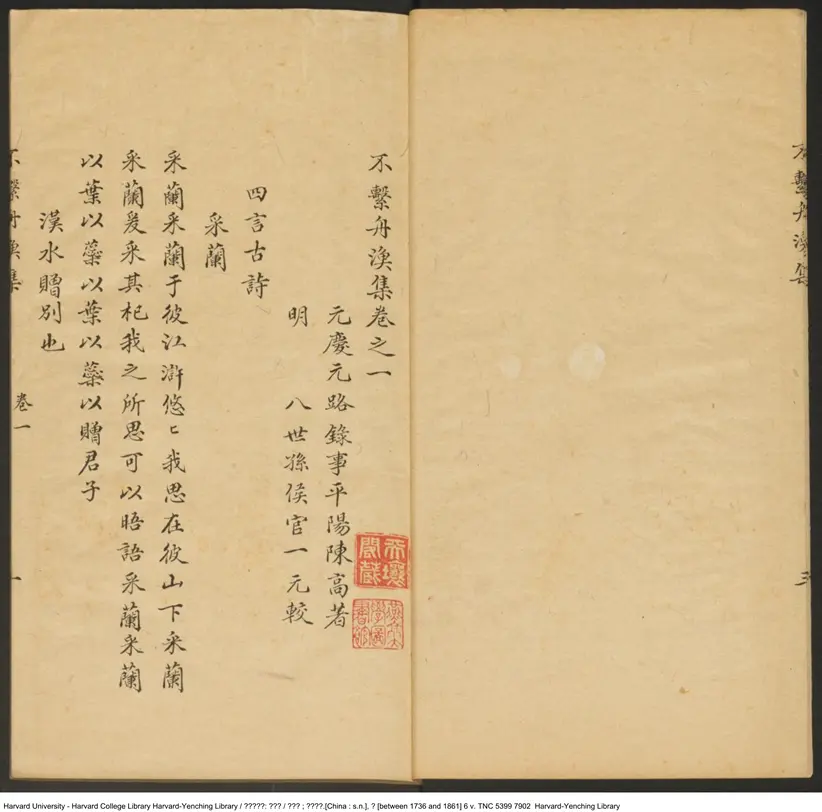 不繫舟漁集
不繫舟漁集卷之一
元慶元路錄事平陽陳高著
明　八世孫侯官一元較
天壤閣藏
四言古詩
采蘭
采蘭采蘭于彼江滸悠〻我思在彼山下采蘭
采蘭爰采其杞我之所思可以晤語采蘭采蘭
以葉以蘂以葉以蘂以贈君子
漠水贈別也
不繫舟漁集　卷一　一
Harvard University - Harvard College Library Harvard-Yenching Library / ?????: ??? / ??? ; ????.[China : s.n.], ? [between 1736 and 1861] 6 v. TNC 5399 7902 Harvard-Yenching Library